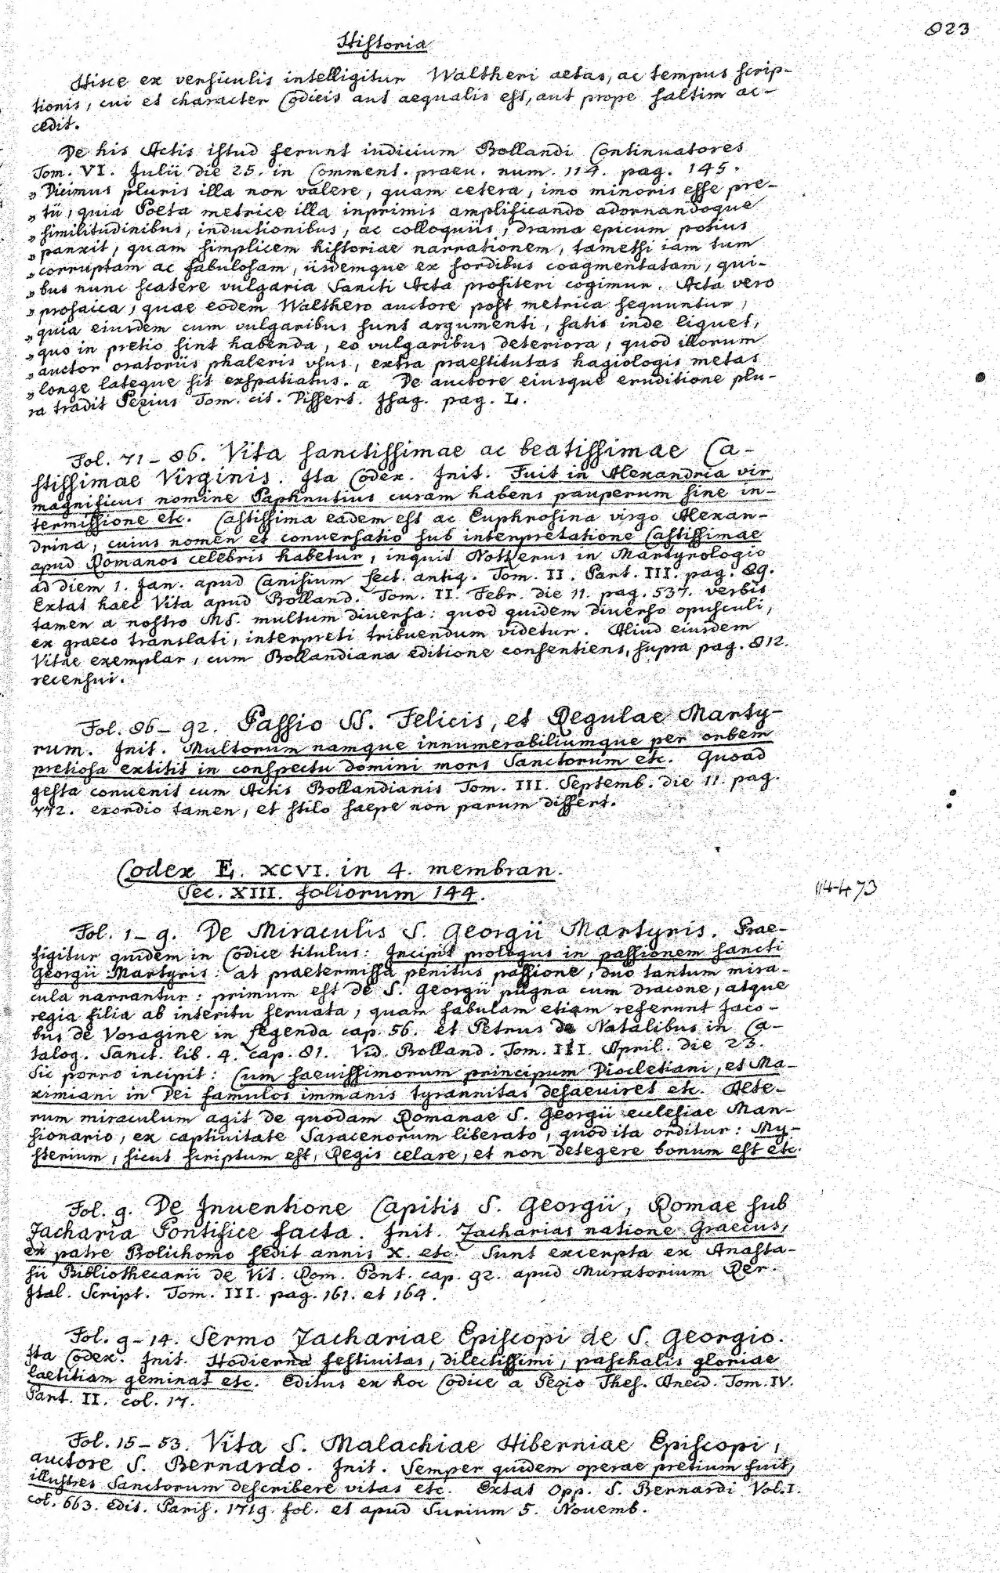 823
Historia
Hisce ex versiculis intelligitur Waltheri aetas, ac tempus scrip-
tionis, cui et character Codicis aut aequalis est, aut prope saltim ac-
cedit.
De his Actis istud ferunt iudicium Bollandi Continuatores
Tom. VI. Julii die 25. in Comment. praeu. num. 114. pag. 145.
„Dicimus pluris illa non valere, quam cetera, imo minoris esse pre-
„tii, quia Poeta metrice illa inprimis amplificando adornandoque
„similitudinibus, inductionibus, ac colloquiis, drama epicum potius
„panxit, quam simplicem historiae narrationem, tametsi iam tum
„corruptam ac fabulosam, iisdemque ex sordibus coagmentatam, qui-
„bus nunc scatere vulgaria Sancti Acta profiteri cogimur. Acta vero
„prosaica, quae eodem Walthero auctore post metrica sequuntur,
„quia eiusdem cum vulgaribus sunt argumenti, satis inde liquet,
„quo in pretio sint habenda, eo vulgaribus deteriora, quod illorum
„auctor oratoriis phaleris usus, extra praestitutas hagiologis metas
„longe lateque sit exspatiatus. a De auctore eiusque eruditione plu-
ra tradit Pezius Tom. cit. Dissert. Isag. pag. L.
Fol. 71-86. Vita sanctissimae ac beatissimae Ca-
stissimae Virginis. Ita Codex. Init. Fuit in Alexandria vir
magnificus nomine Paphnutius curam habens pauperum sine in-
termissione etc. Castissima eadem est ac Euphrosina virgo Alexan-
drina, cuius nomen et conversatio sub interpretatione Castissimae
apud Romanos celebris habetur, inquit Notkerus in Martyrologio
ad diem 1. Jan. apud Canisium Lect. antiq. Tom. II. Part. III. pag. 89.
Extat haec Vita apud Bolland. Tom. II. Febr. die 11. pag. 537. verbis
tamen a nostro MS. multum diuersa: quod quidem diuerso opusculi,
ex graeco translati, interpreti tribuendum videtur. Aliud eiusdem
Vitae exemplar, cum Bollandiana editione consentiens, supra pag. 812.
recensui.
Fol. 86-92. Passio SS. Felicis, et Regulae Marty-
rum. Init. Multorum namque innumerabiliumque per orbem
pretiosa extitit in conspectu domini mors Sanctorum etc. Quoad
gesta conuenit cum Actis Bollandianis Tom. III. Septemb. die 11. pag.
772. exordio tamen, et stilo saepe non parum differt.
Codex E. XCVI. in 4. membran.
Sec. XIII. foliorum 144.
114473
Fol. 1-9. De Miraculis S. Georgii Martyris. Prae-
figitur quidem in Codice titulus: Incipit prologus in passionem sancti
Georgii Martyris: at praetermissa penitus passione, duo tantum mira-
cula narrantur: primum est de S. Georgii pugna cum dracone, atque
regia filia ab interitu seruata, quam fabulam etiam referunt Jaco-
bus de Voragine in Legenda cap. 56. et Petrus de Natalibus in Ca-
talog. Sanct. lib. 4. cap. 81. Vid. Bolland. Tom. III April. die 23.
Sic porro incipit: Cum saeuissimorum principum Diocletiani, et Ma-
ximiani in Dei famulos immanis tyrannitas desaeuiret etc. Alte-
rum miraculum agit de quodam Romanae S. Georgii ecclesiae Man-
sionario, ex captiuitate Saracenorum liberato, quod ita orditur: My-
sterium, sicut scriptum est, Regis celare, et non detegere bonum est etc.
Fol. 9. De Inuentione Capitis S. Georgii, Romae sub
Zacharia Pontifice facta. Init. Zacharias natione Graecus,
ex patre Bolichomo sedit annis X. etc. Sunt excerpta ex Anasta-
sii Bibliothecarii de Vit. Rom. Pont. cap. 92. apud Muratorium Rer.
Ital. Script. Tom. III. pag. 161. et 164.
Fol. 9-14. Sermo Zachariae Episcopi de S. Georgio.
Ita Codex. Init. Hodierna festiuitas, dilectissimi, paschalis gloriae
laetitiam geminat etc. Editus ex hoc Codice a Pezio Thes. Anecd. Tom. IV.
Part. II. col. 17.
Fol. 15-53. Vita S. Malachiae Hiberniae Episcopi,
auctore S. Bernardo. Init. Semper quidem operae pretium fuit,
illustres Sanctorum describere vitas etc. Extat Opp. S. Bernardi Vol. I.
col. 663. Edit. Paris. 1719. fol. et apud Surium 5. Nouemb.